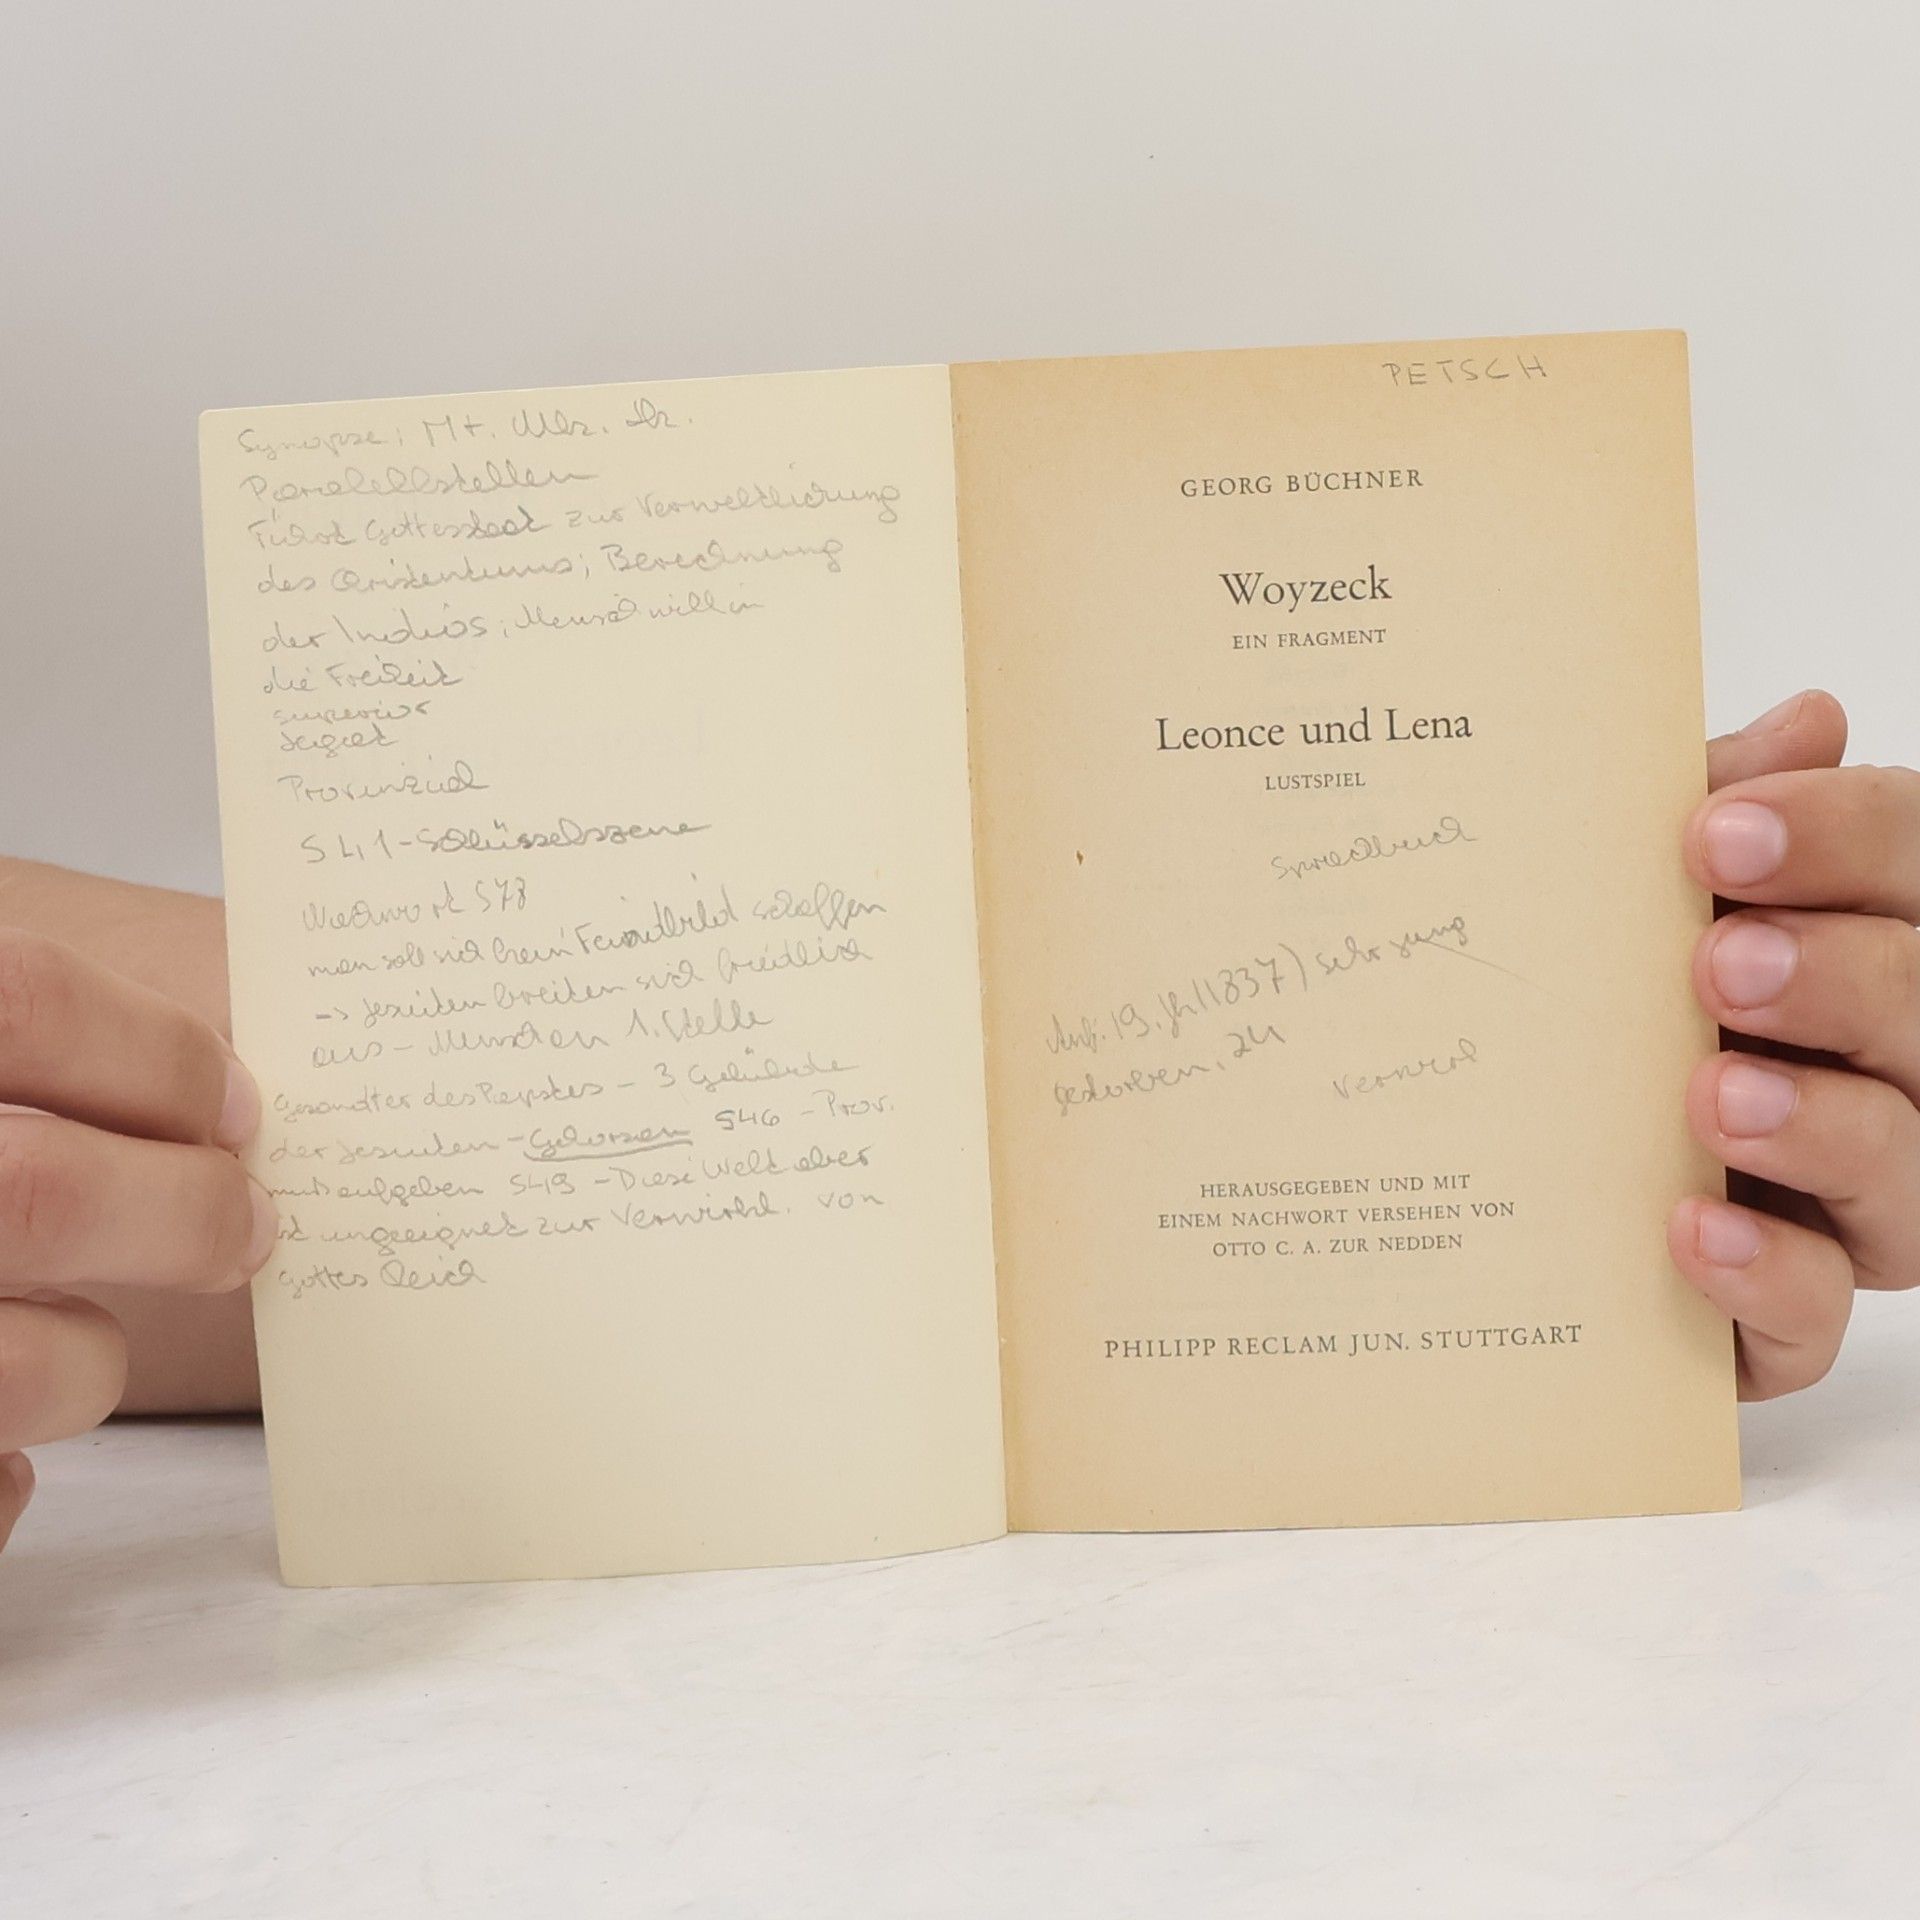 Synopse: Mt. Mk. Lk.
Paralellstellen
Führt Gottesstaat zur Verweltlichung
des Christentums; Berechnung
der Indios; Mensch will in
die Freiheit
superior
Provinzial
S 41-Schlüsselszene
Nachwort S 78
man soll sich kein Feindbild schaffen
-> Jesuiten breiten sich friedlich
aus - Menschen 1. Stelle
Gesandter des Papstes - 3 Gelübde
der Jesuiten - Gehorsam S46 - Prov.
muß aufgeben S49 - Diese Welt aber
ist ungeeignet zur Verwirkl. von
Gottes Reich
PETSCH
GEORG BÜCHNER
Woyzeck
EIN FRAGMENT
Leonce und Lena
LUSTSPIEL
Anf. 19. Jh (1837) sehr jung
gestorben, 24
HERAUSGEGEBEN UND MIT
EINEM NACHWORT VERSEHEN VON
OTTO C. A. ZUR NEDDEN
PHILIPP RECLAM JUN. STUTTGART